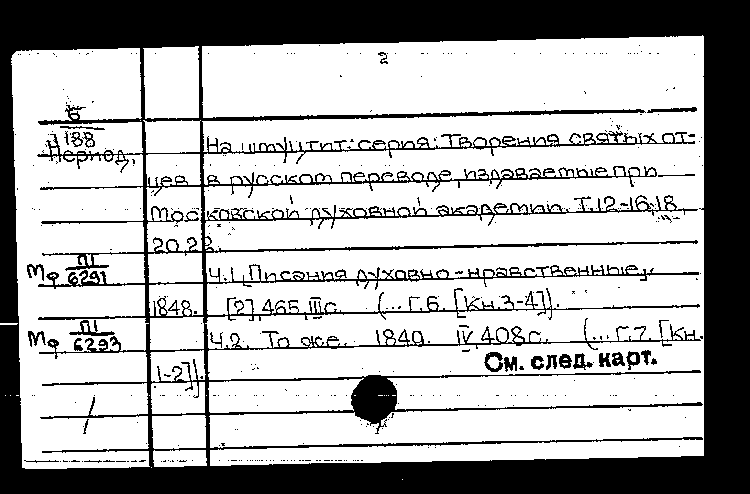 2
Б
188
Период.
На шмуцтит.: серия: Творения святых от-
цев в русском переводе, издаваемые при
Московской духовной академии. Т. 12-16, 18,
20, 22.
Мф П1
6291
Ч.1. Писания духовно-нравственные,
1848. [2], 465, III с. (... Г.6. [Кн. 3-4]).
Мф П1
6293
Ч.2. То же. 1849. IV, 408 с. (... Г.7. [Кн.
1-2]).
См. след. карт.